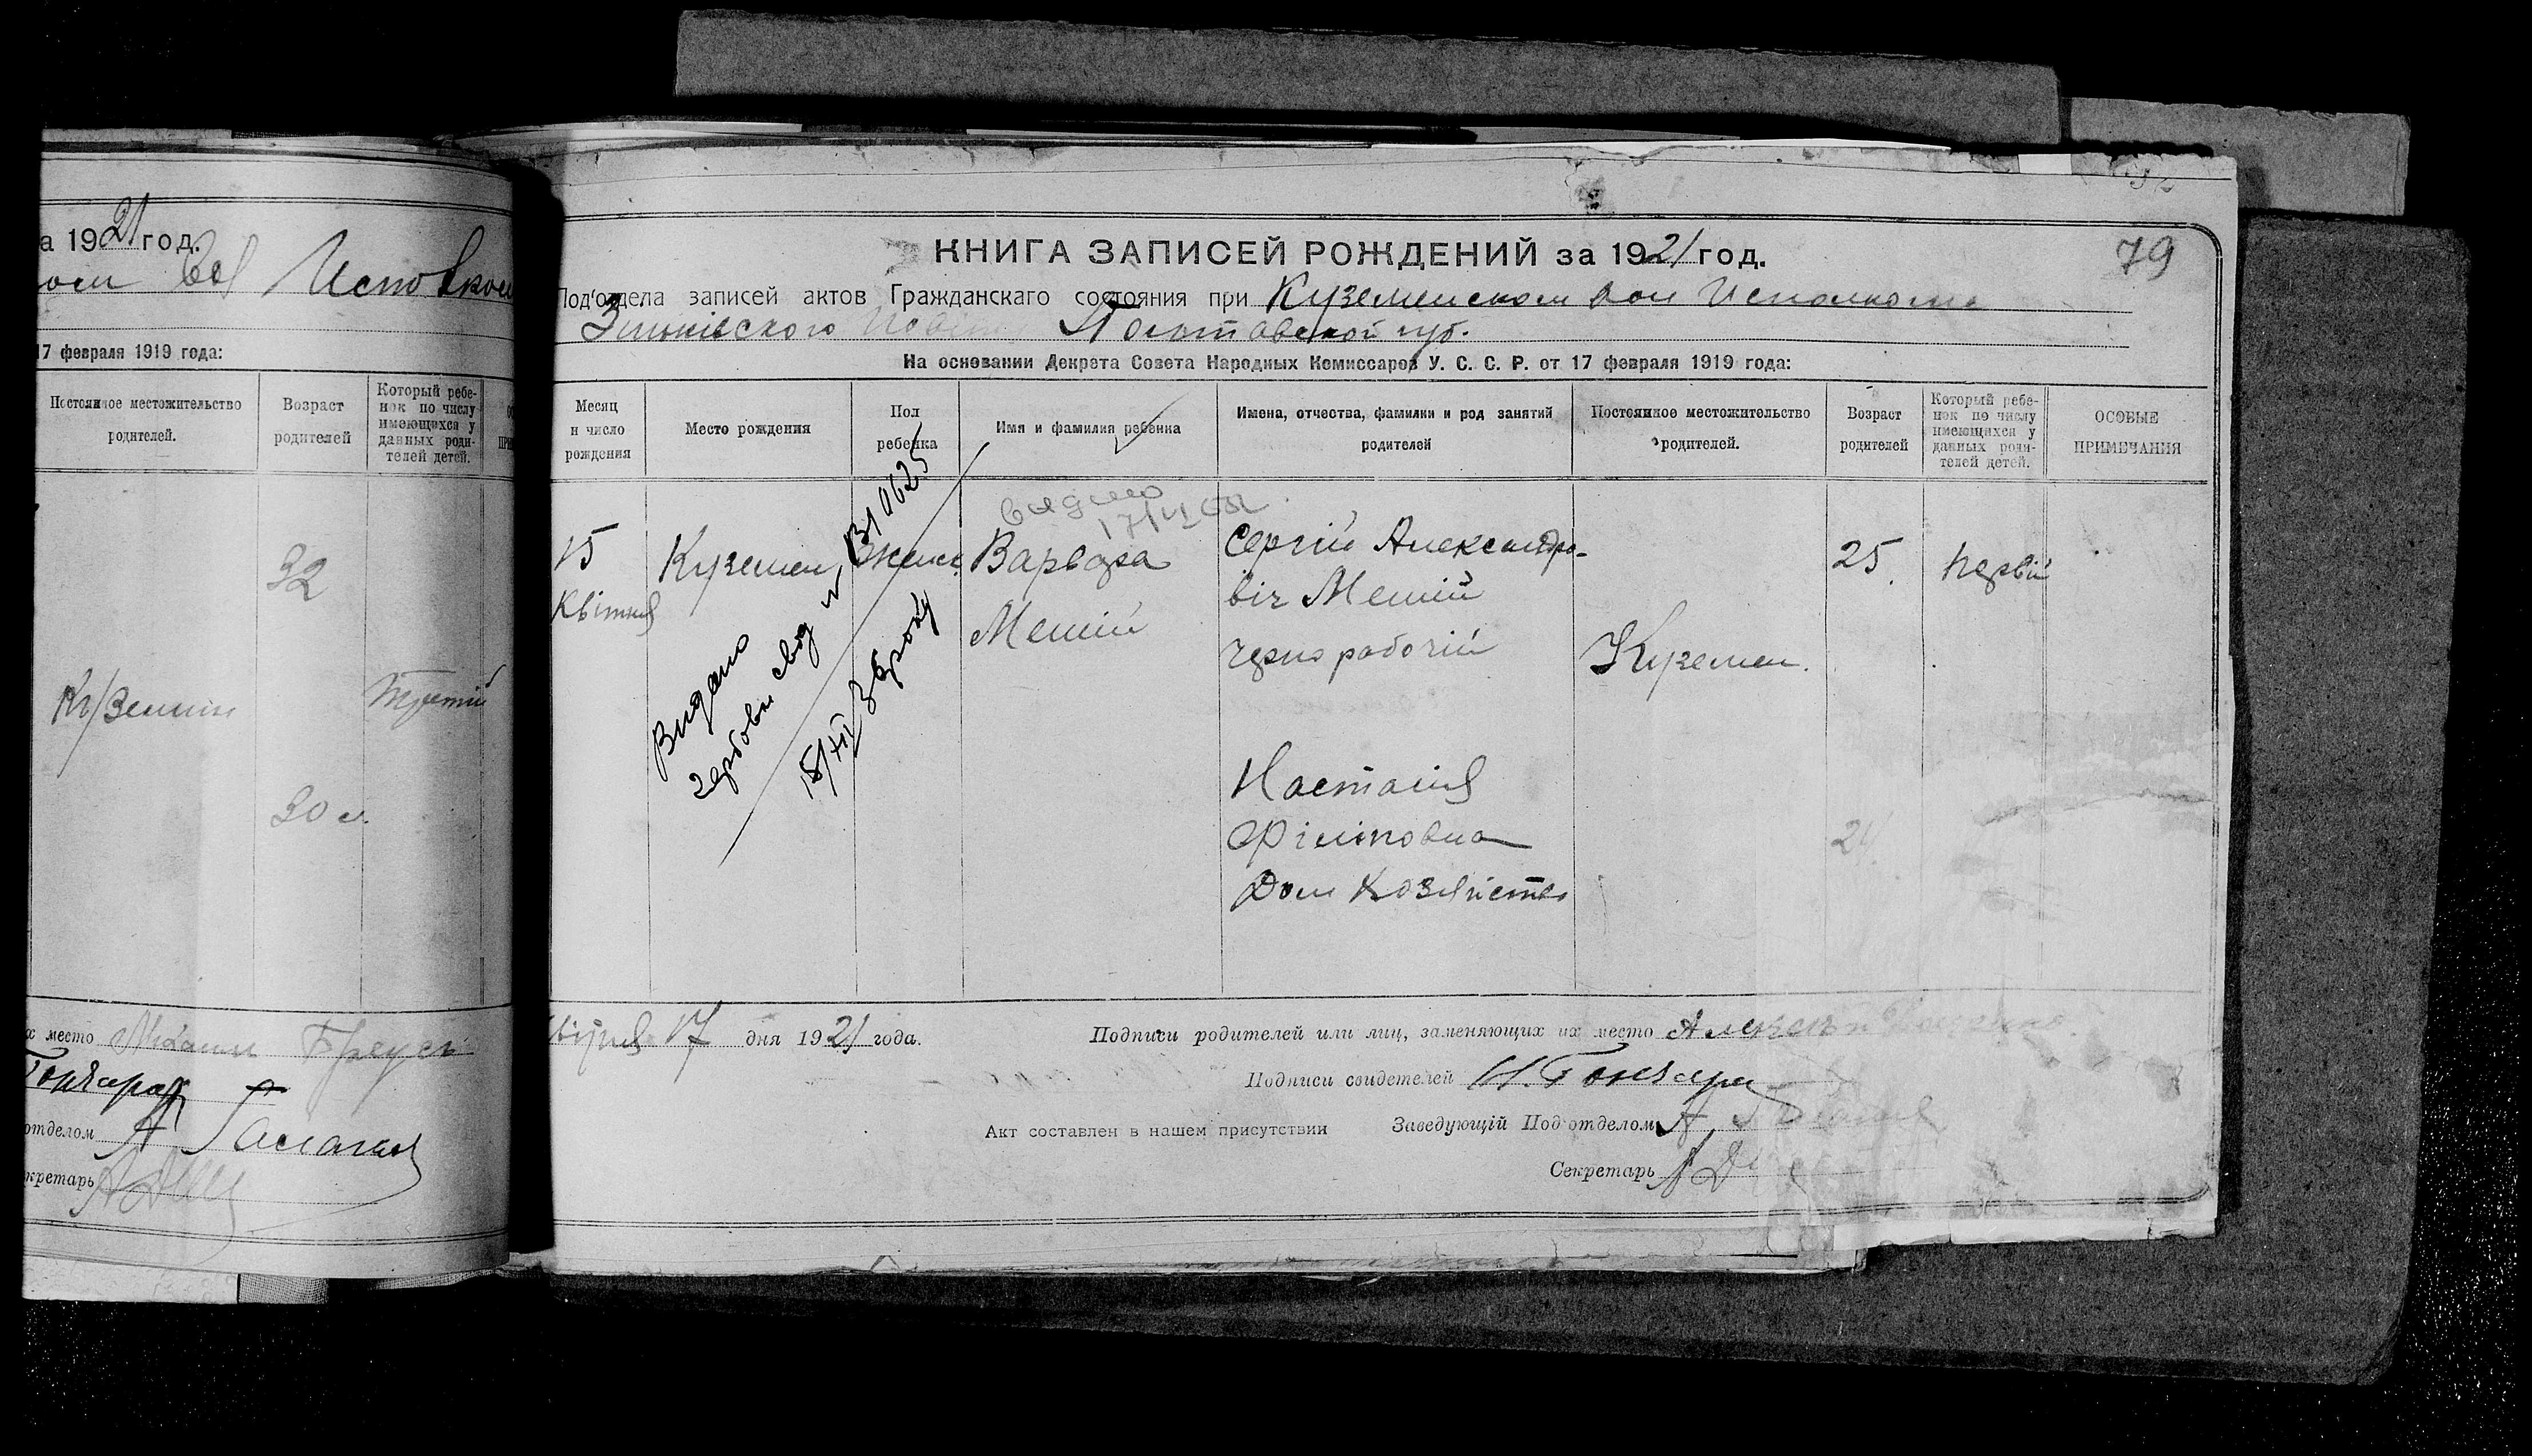 а 1921 год.
Исполком
17 февраля 1919 года:
Постоянное местожительство
родителей.
Возраст
родителей
Который ребе-
нок по числу
имеющихся у
данных роди-
телей детей.
32
Третій
30 л.
х место Михаил Бреусъ
Гончарь
отделом А Галаган
кретарь
79
КНИГА ЗАПИСЕЙ РОЖДЕНИЙ за 1921 год.
Под'отдела записей актов Гражданскаго состояния при Куземенском вол Исполкоме
Зіньківского Повіт Полтавской губ.
На основании Декрета Совета Народных Комиссаров У. С. С. Р. от 17 февраля 1919 года:
Месяц
и число
рождения
Место рождения
Пол
ребенка
Имя и фамилия ребенка
Имена, отчества, фамилии и род занятий
родителей
Постоянное местожительство
родителей.
Возраст
родителей
Который ребе-
нок по числу
имеющихся у
данных роди-
телей детей.
ОСОБЫЕ
ПРИМЕЧАНИЯ
видано
15
Квітня
Куземен
Женск.
Варвара
Меший
Сергій Александро-
віч Меший
чернорабочій
Куземен.
25.
первій
Видано
гербове свід
Настасия
Філіповна
Дом Хозяйство
17 дня 1921 года.
Подписи родителей или лиц, заменяющих их место
Подписи свидетелей И. Гончарь
Акт составлен в нашем присутствии
Заведующій Под'отделом А
Секретарь